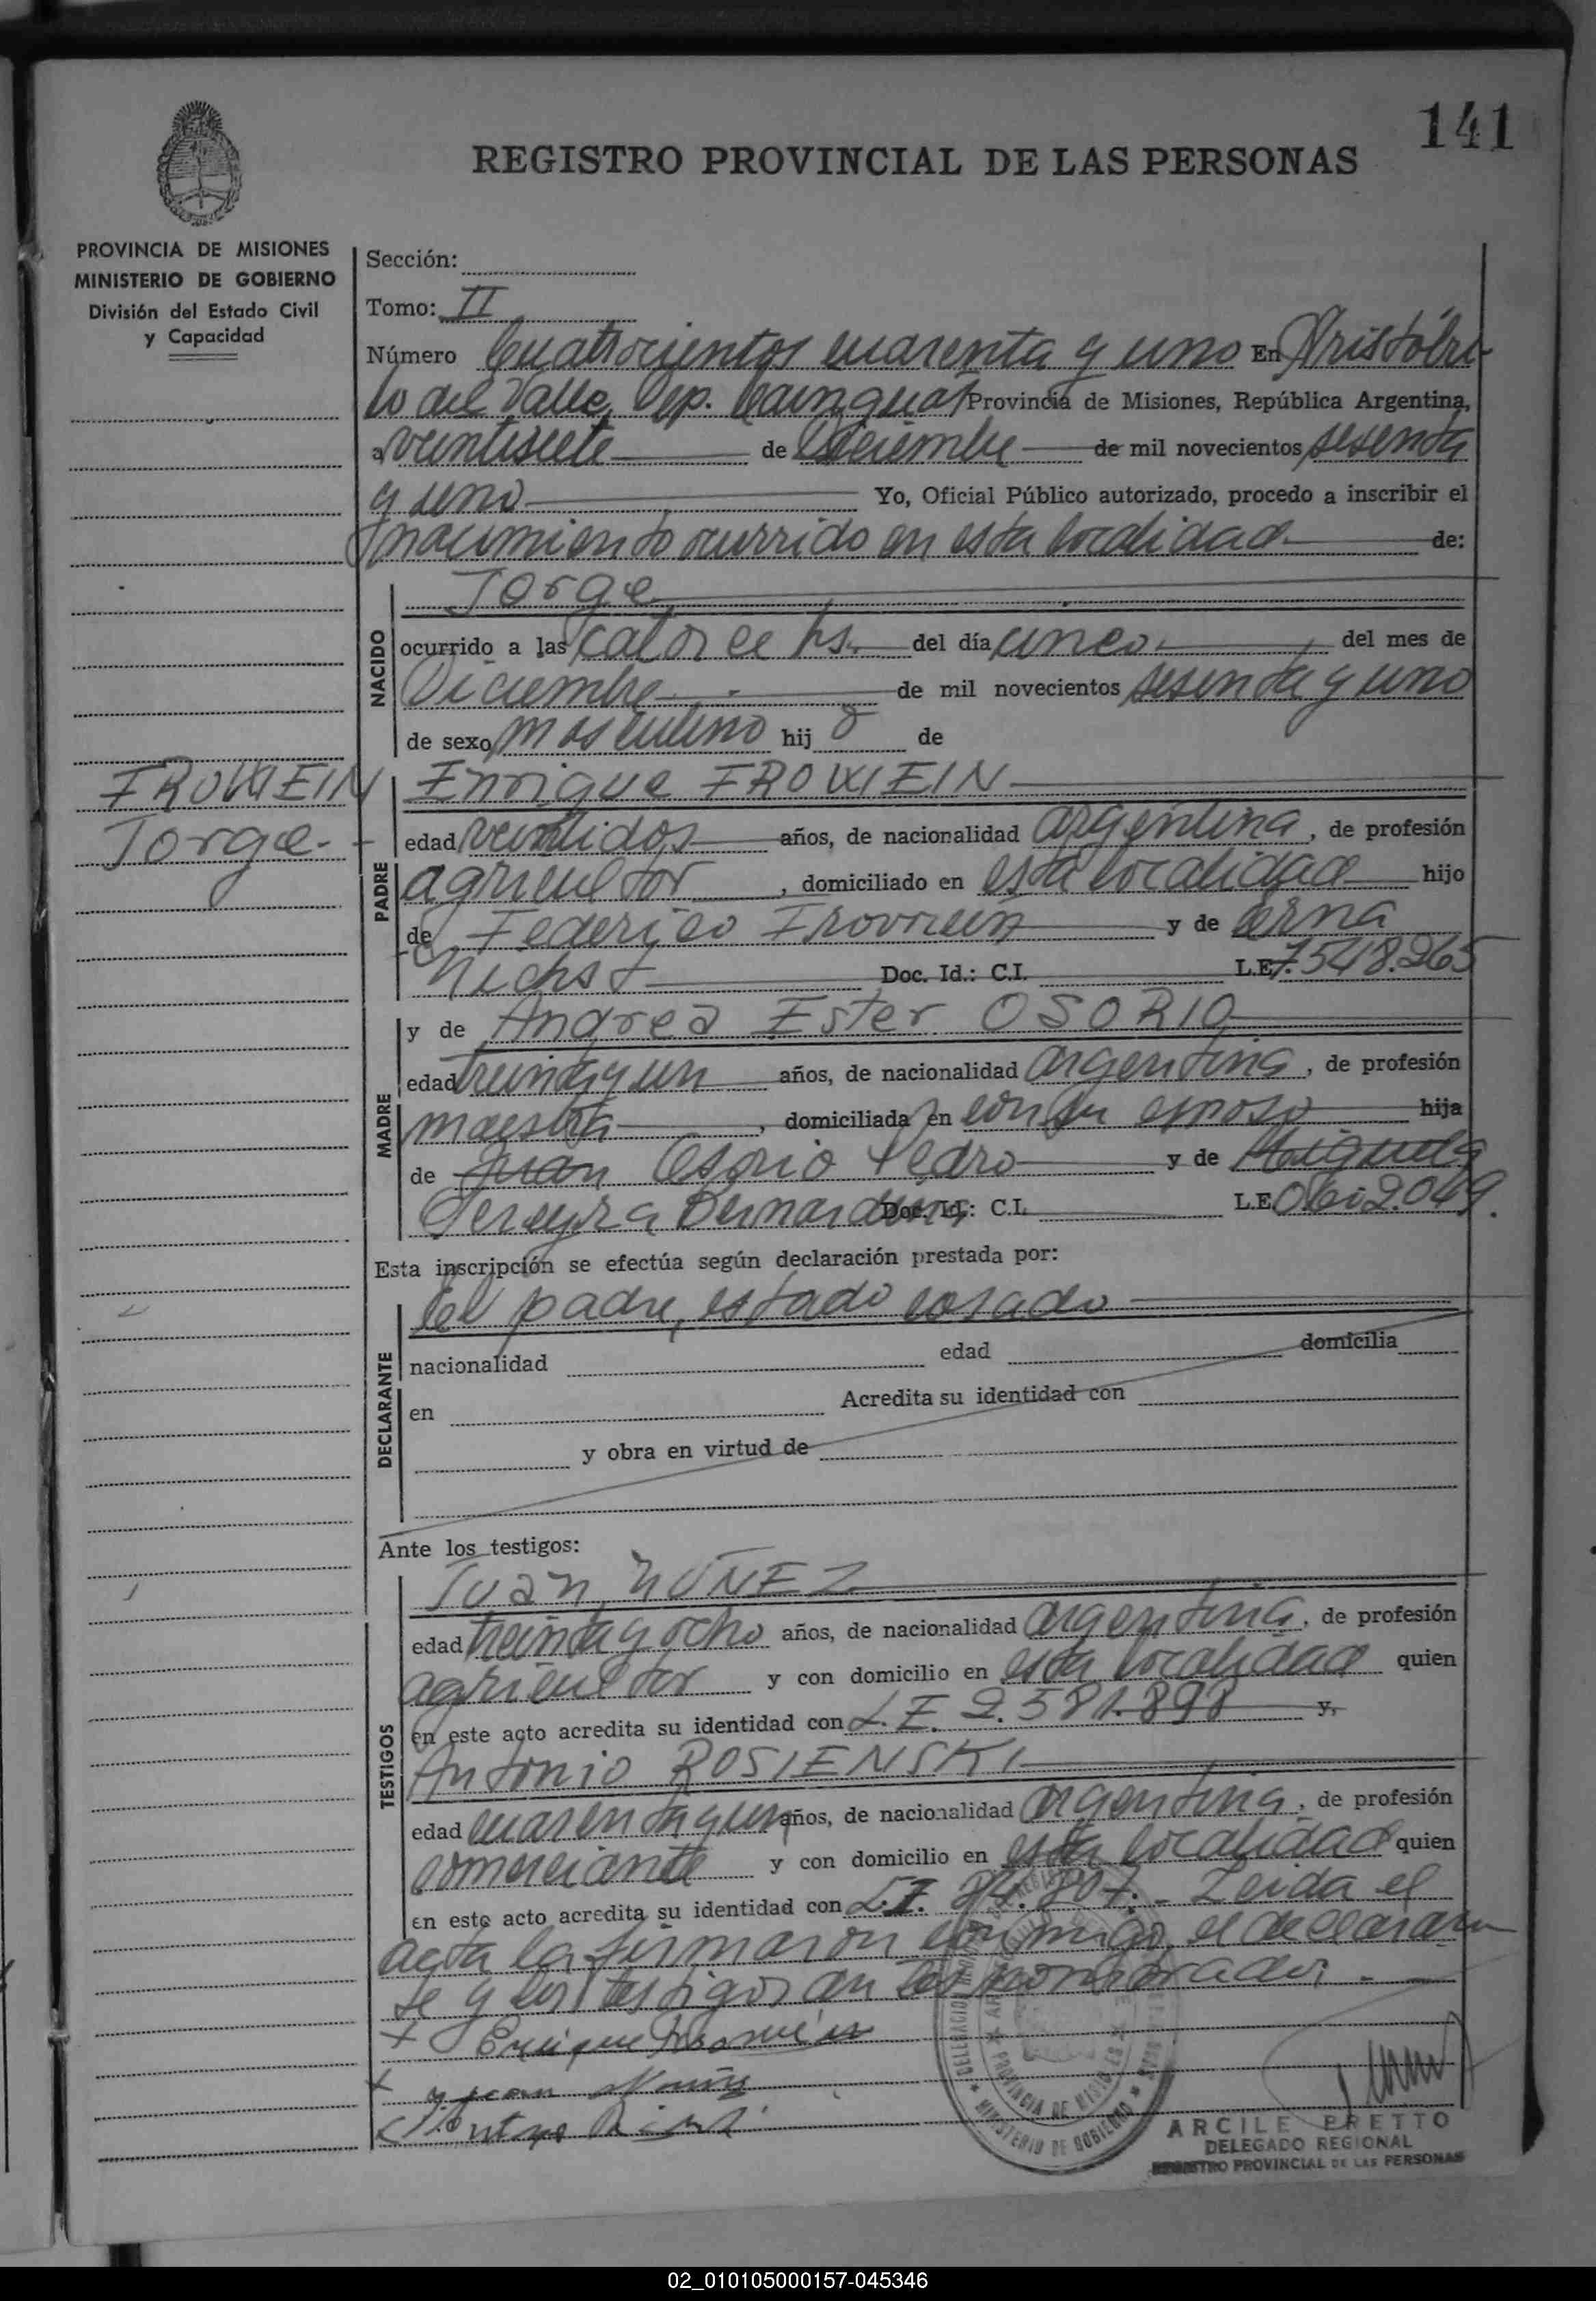 141
REGISTRO PROVINCIAL DE LAS PERSONAS
PROVINCIA DE MISIONES
MINISTERIO DE GOBIERNO
División del Estado Civil
y Capacidad
Sección:
Tomo: II
Número Cuatrocientos cuarenta y uno En Aristóbu-
lo del Valle, Dep. Cainguás Provincia de Misiones, República Argentina,
a veintisiete de Diciembre de mil novecientos sesenta
y uno Yo, Oficial Público autorizado, procedo a inscribir el
nacimiento ocurrido en esta localidad de:
NACIDO
Jorge
ocurrido a las catorce hs. del día cinco del mes de
Diciembre de mil novecientos sesenta y uno
de sexo masculino hijo de
FROWEIN
Jorge.-
PADRE
Enrique FROWEIN
edad veintidos años, de nacionalidad argentina, de profesión
agricultor, domiciliado en esta localidad hijo
de Federico Frowein y de Erna
Doc. Id.: C.I. L.E. 7.548.265
MADRE
y de Andrea Ester OSORIO
edad treinta y un años, de nacionalidad argentina, de profesión
maestra, domiciliada en con su esposo hija
de Juan Osorio Pedro y de Miguela
Pereyra Bernardina Doc. Id.: C.I. L.E.
Esta inscripción se efectúa según declaración prestada por:
DECLARANTE
el padre, estado casado
nacionalidad edad domicilia
en Acredita su identidad con
y obra en virtud de
Ante los testigos:
TESTIGOS
Juan NUÑEZ
edad treinta y ocho años, de nacionalidad argentina, de profesión
agricultor y con domicilio en esta localidad quien
en este acto acredita su identidad con L.E. 2.581.898 y,
Antonio ROSIENSKI
edad cuarenta y un años, de nacionalidad argentina, de profesión
comerciante y con domicilio en esta localidad quien
en este acto acredita su identidad con L.E. Leida el
acta la firmaron conmigo, el declaran
te y los testigos an tes nombrados.-
x Enrique Frowein
x Juan Nuñez
MINISTERIO DE GOBIERNO
PROVINCIA DE MISIONES
ARCILE PRETTO
DELEGADO REGIONAL
REGISTRO PROVINCIAL DE LAS PERSONAS
02_010105000157-045346